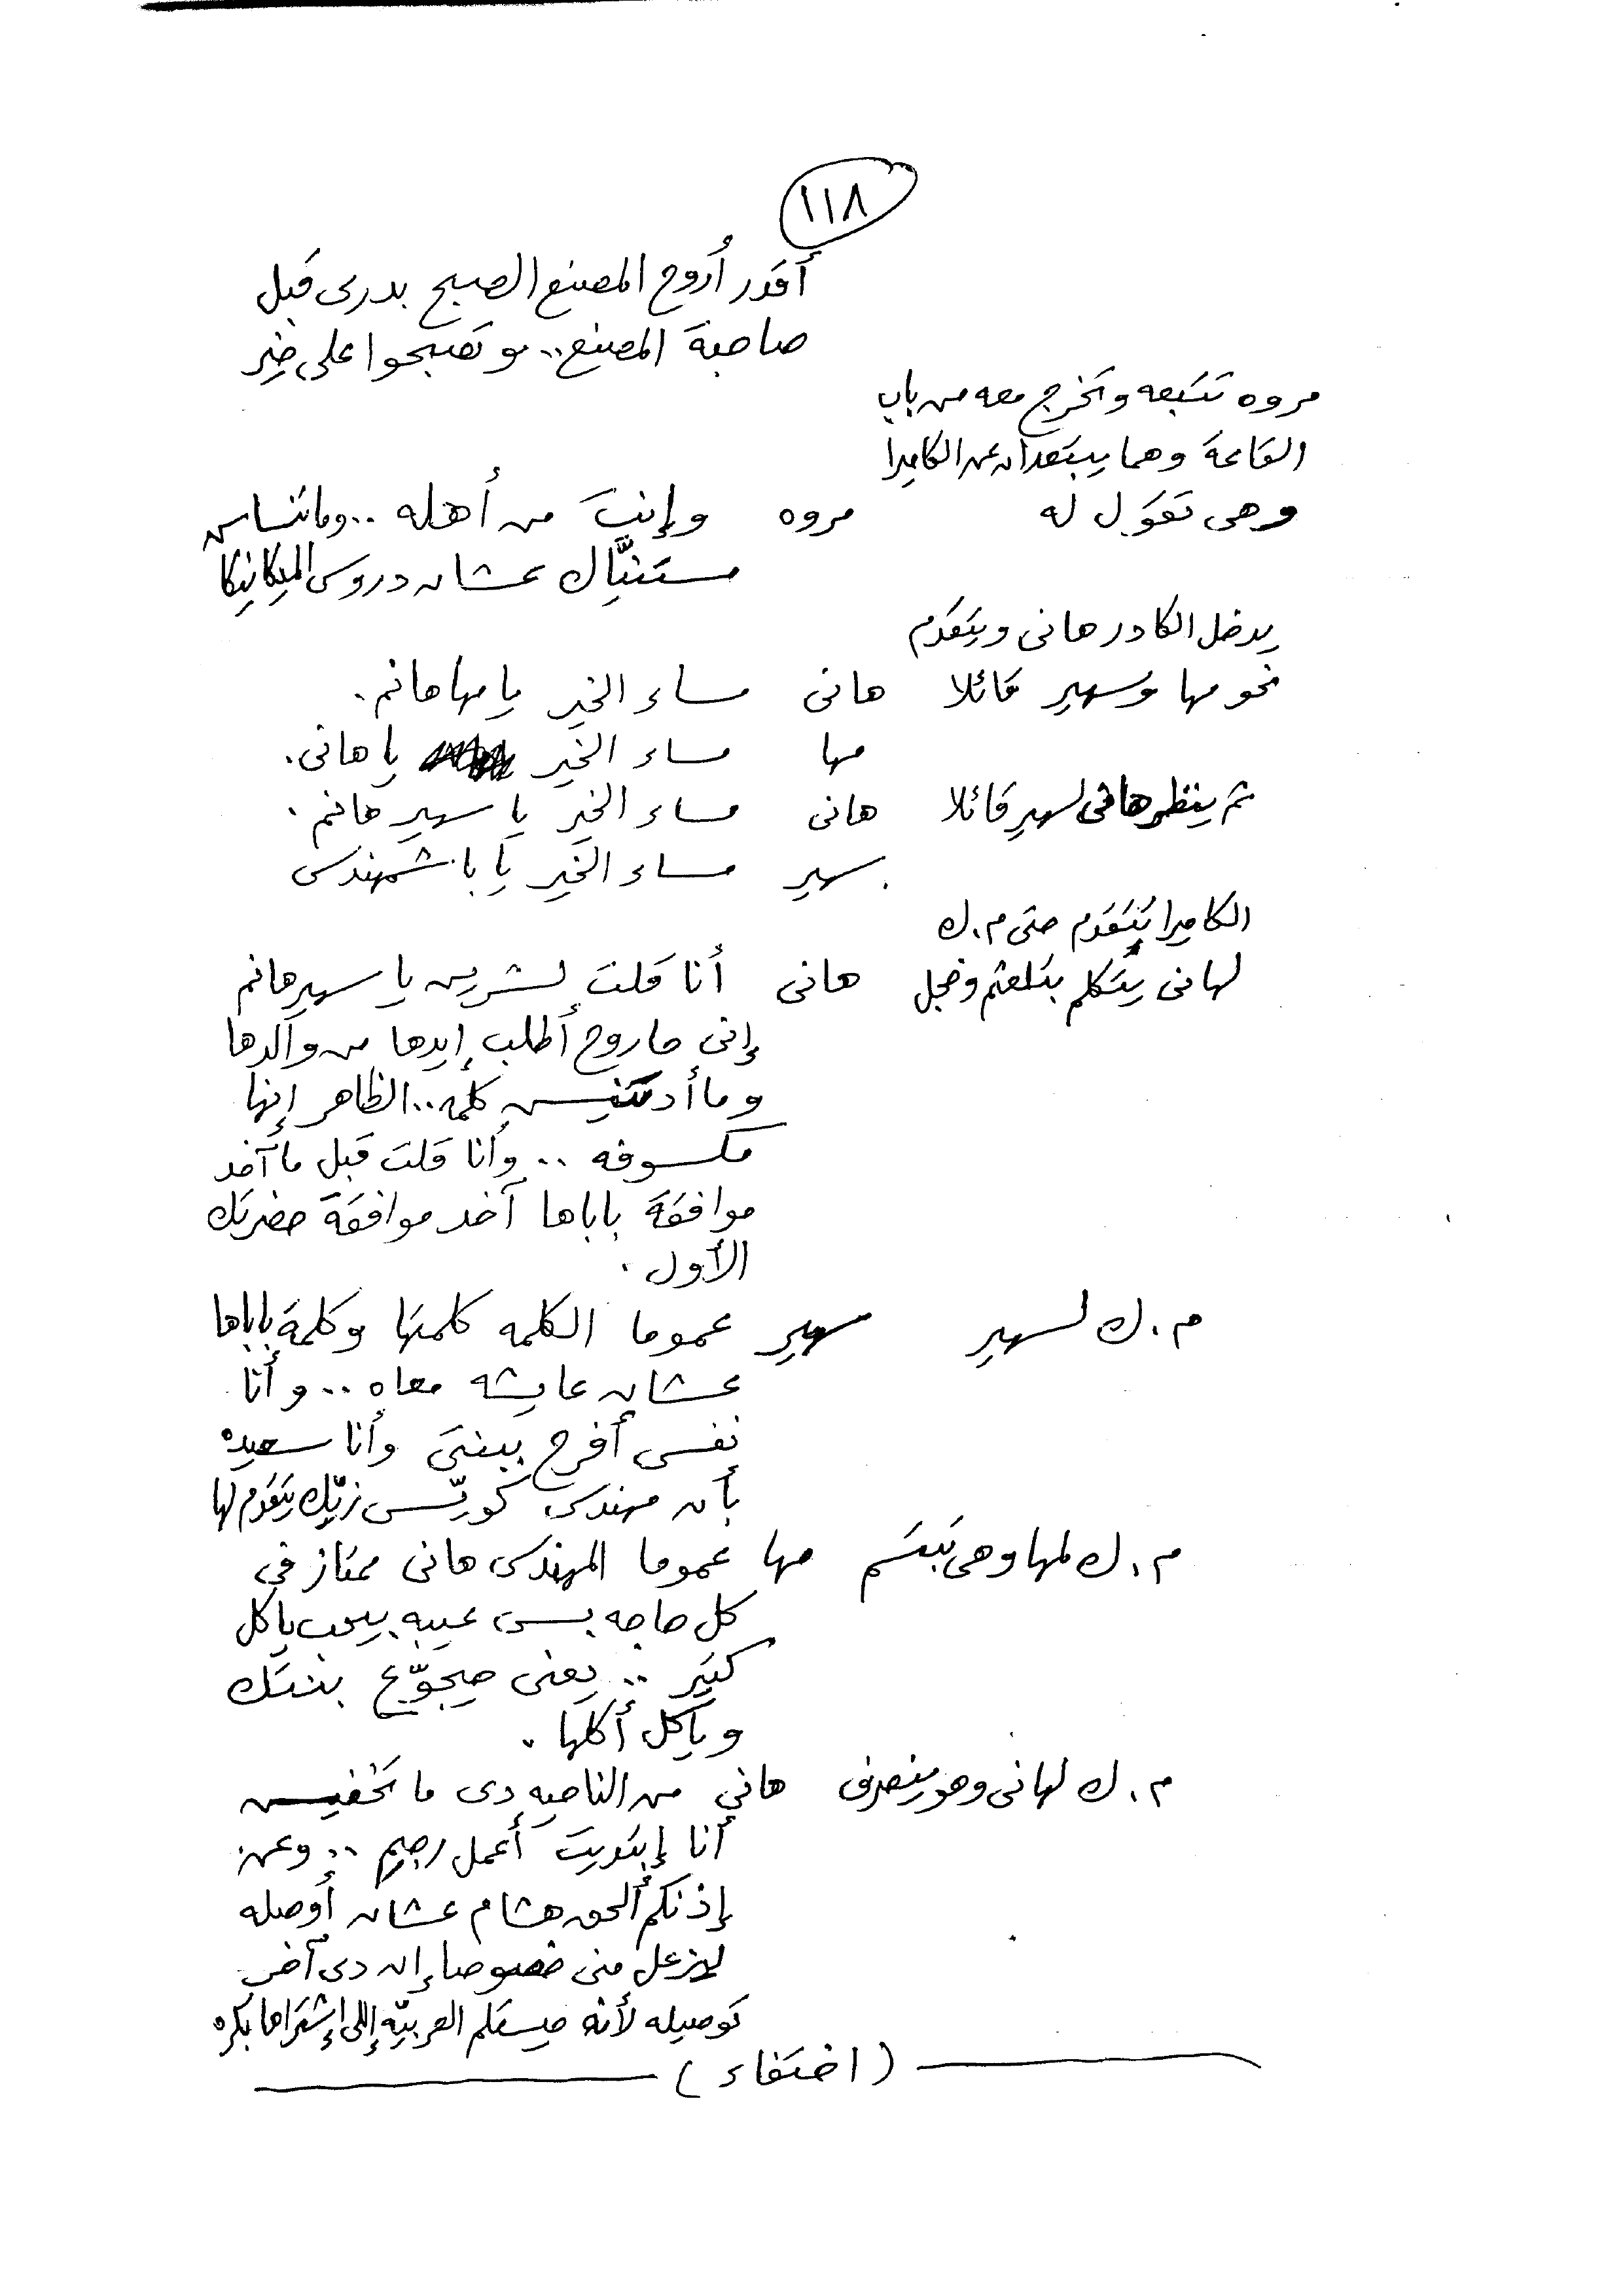 ١١٨
أقدر أروح المصنع الصبح بدرى قبل
صاحبة المصنع .. وتصبحوا على خير
مروه تتبعه وتخرج معه من باب
القاعة وهما يبتعدان عن الكاميرا
وهى تقول له مروه وإنت من أهله .. وماتنساش
مستنيَّاك عشان دروس الميكانيكا
يدخل الكادر هانى ويتقدم
نحو مها وسهير قائلا هانى مساء الخير يا مها هانم .
مها مساء الخير يا هانى .
ثم ينظر هانى لسهير قائلا هانى مساء الخير يا سهير هانم .
سهير مساء الخير يا باشمهندس
الكاميرا تتقدم حتى م . ك
لهانى يتكلم بتلعثم وخجل هانى أنا قلت لشريـن يا سهير هانم
إنى حاروح أطلب إيدها من والدها
وما أدتنيش كلمه .. الظاهر إنها
مكسوفه .. وأنا قلت قبل ما آخد
موافقة باباها آخد موافقة حضرتك
الأول .
م . ك لسهير سهير عموما الكلمه كلمتها وكلمة باباها
عشان عايشه معاه .. وأنا
نفسى أفرح ببنتى وأنا سعيده
بأن مهندس كويّس زيّك يتقدم لها
م . ك لمها وهى تبتسم مها عموما المهندس هانى ممتاز فى
كل حاجه بس عيبه بيحب ياكل
كتير .. يعنى حيجوّع بنتك
وياكل أكلها .
م . ك لهانى وهو ينصرف هانى من الناحيه دى ما تخفيش
أنا إبتديت أعمل رجيم .. وعن
إذنكم ألحق هشام عشان أوصله
لايزعل منى خصوصا إن دى آخر
توصيله لأنه حيستلم العربيّه إللى إشتراها بكره
( اختفاء )